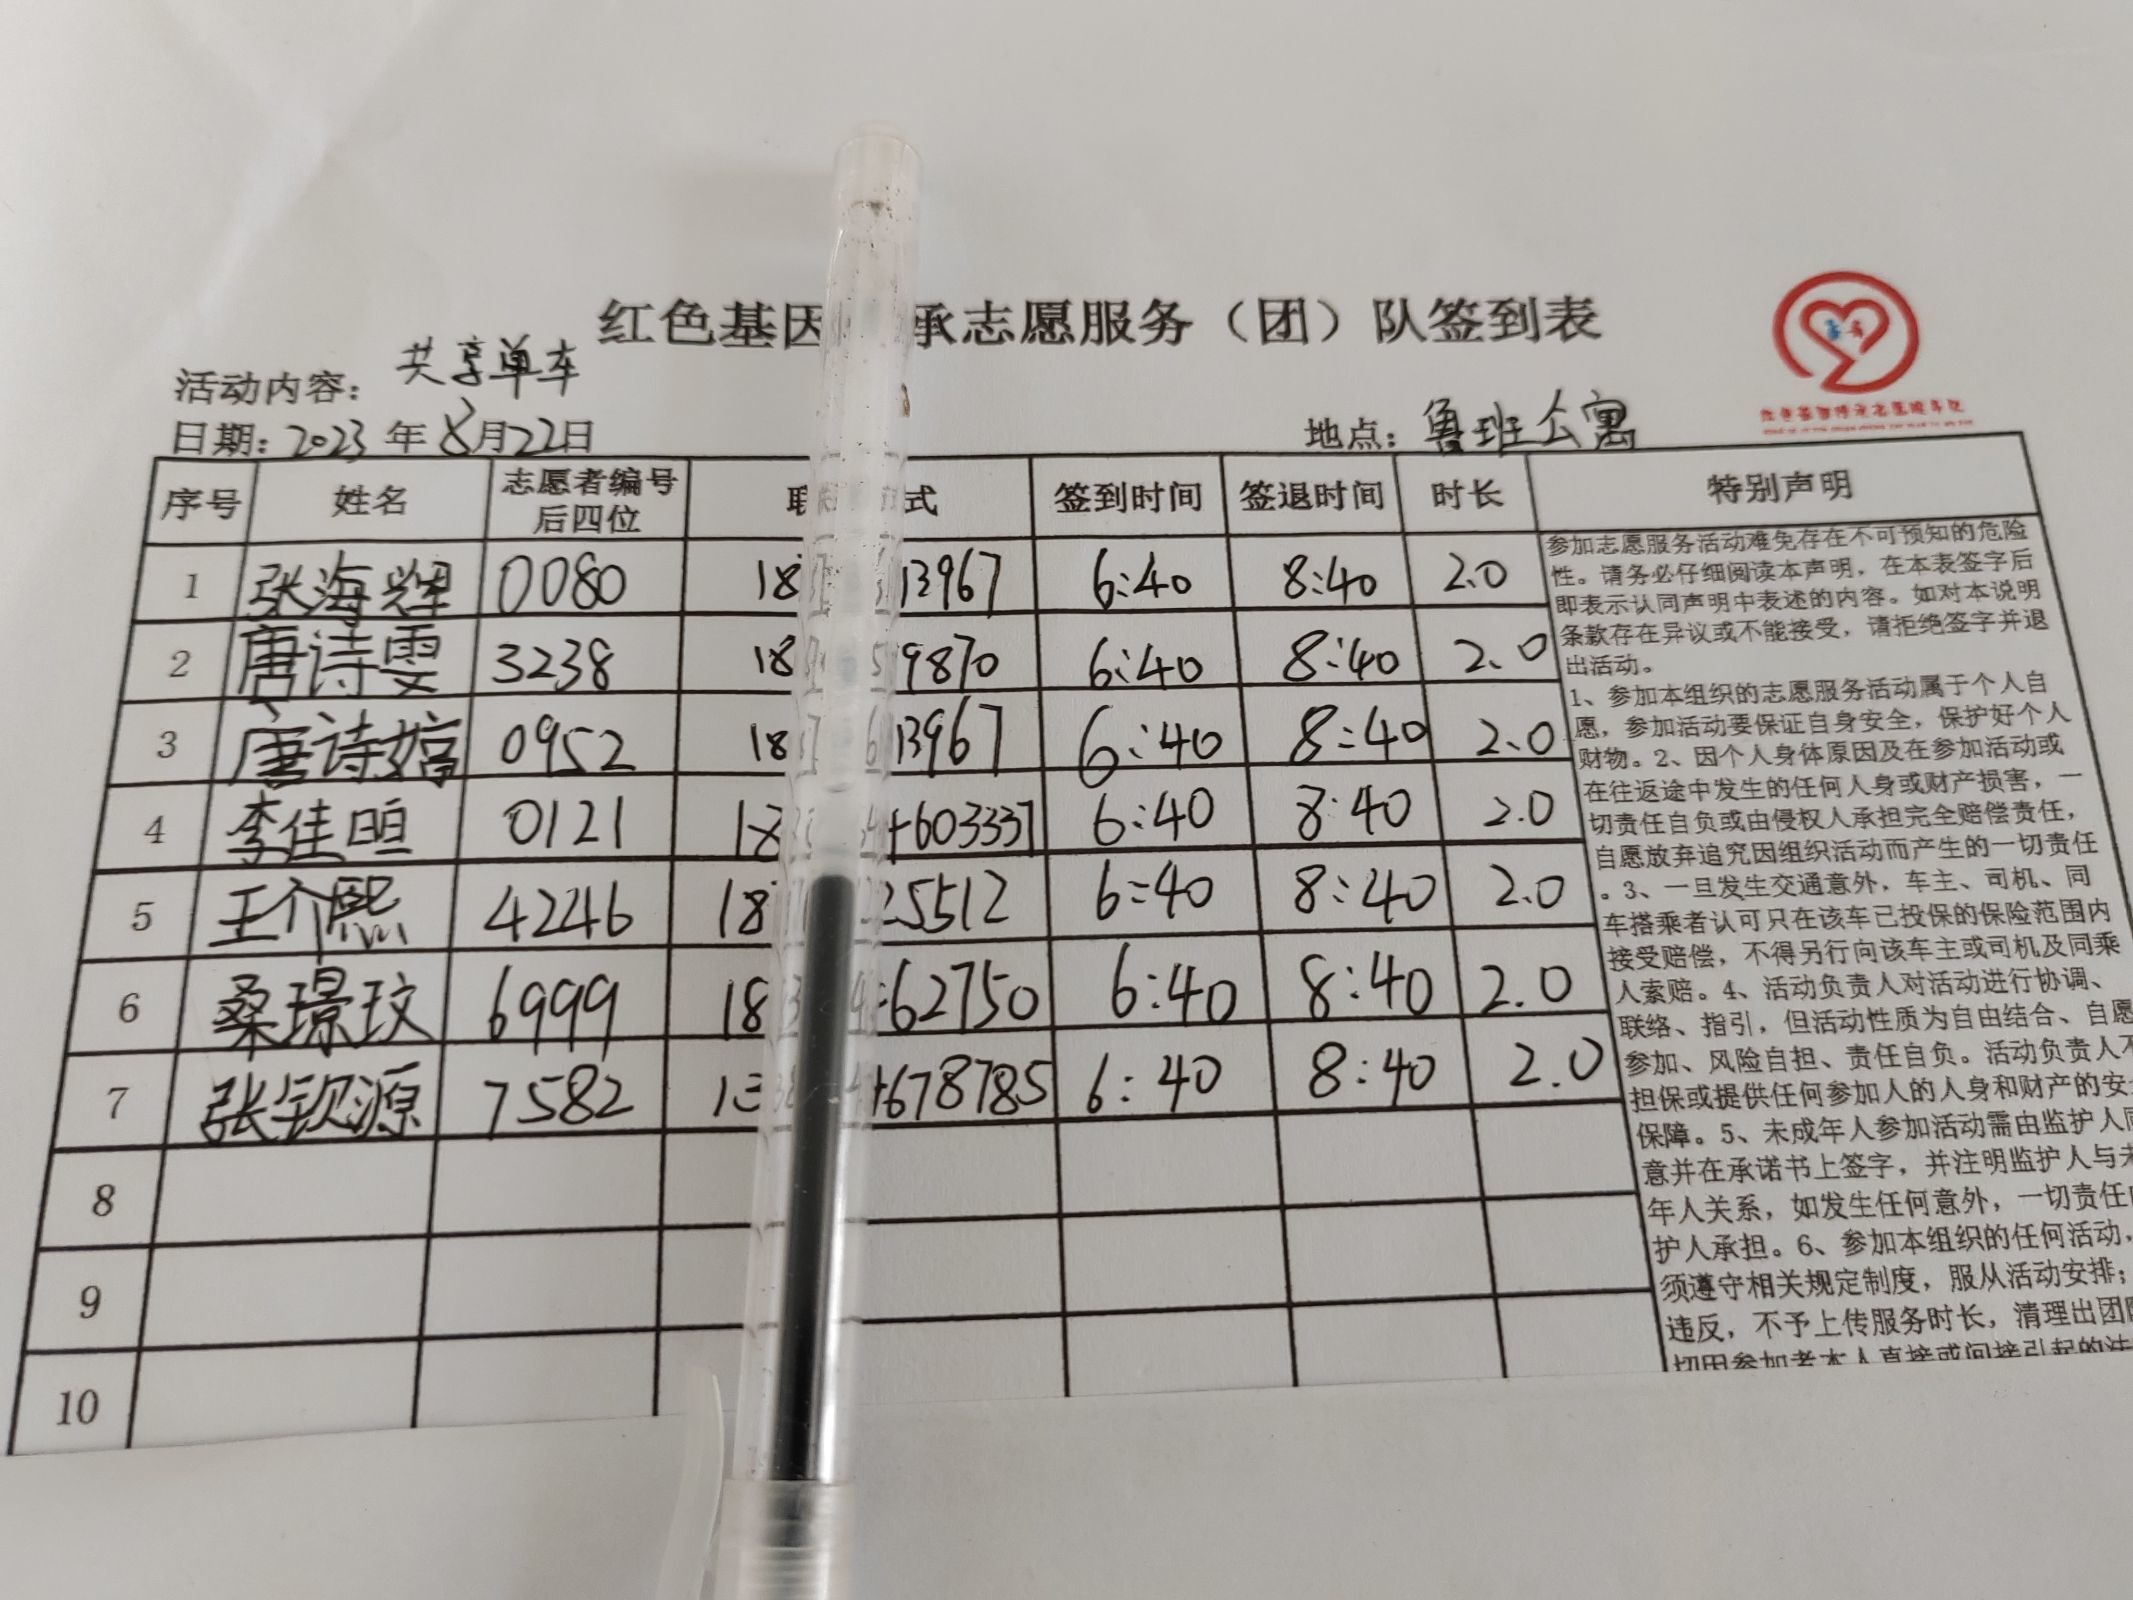 红色基因 承志愿服务（团）队签到表
活动内容：共享单车
日期：2023年8月22日 地点：鲁班公寓
序号 姓名 志愿者编号后四位 联 式 签到时间 签退时间 时长 特别声明
1 张海辉 0080 18 13967 6:40 8:40 2.0
2 唐诗雯 3238 18 9870 6:40 8:40 2.0
3 唐诗嫣 0952 18 13967 6:40 8:40 2.0
4 李佳暄 0121 18 603337 6:40 8:40 2.0
5 王介熙 4246 18 25512 6:40 8:40 2.0
6 桑璟玟 6999 18 62750 6:40 8:40 2.0
7 张钦源 7582 1 678785 6:40 8:40 2.0
8
9
10
参加志愿服务活动难免存在不可预知的危险
性。请务必仔细阅读本声明，在本表签字后
即表示认同声明中表述的内容。如对本说明
条款存在异议或不能接受，请拒绝签字并退
出活动。
1、参加本组织的志愿服务活动属于个人自
愿，参加活动要保证自身安全，保护好个人
财物。2、因个人身体原因及在参加活动或
在往返途中发生的任何人身或财产损害，一
切责任自负或由侵权人承担完全赔偿责任，
自愿放弃追究因组织活动而产生的一切责任
。3、一旦发生交通意外，车主、司机、同
车搭乘者认可只在该车已投保的保险范围内
接受赔偿，不得另行向该车主或司机及同乘
人索赔。4、活动负责人对活动进行协调、
联络、指引，但活动性质为自由结合、自愿
参加、风险自担、责任自负。活动负责人不
担保或提供任何参加人的人身和财产的安全
保障。5、未成年人参加活动需由监护人同
意并在承诺书上签字，并注明监护人与未
年人关系，如发生任何意外，一切责任由
护人承担。6、参加本组织的任何活动，
须遵守相关规定制度，服从活动安排；
违反，不予上传服务时长，清理出团队
切因参加者本人直接或间接引起的法